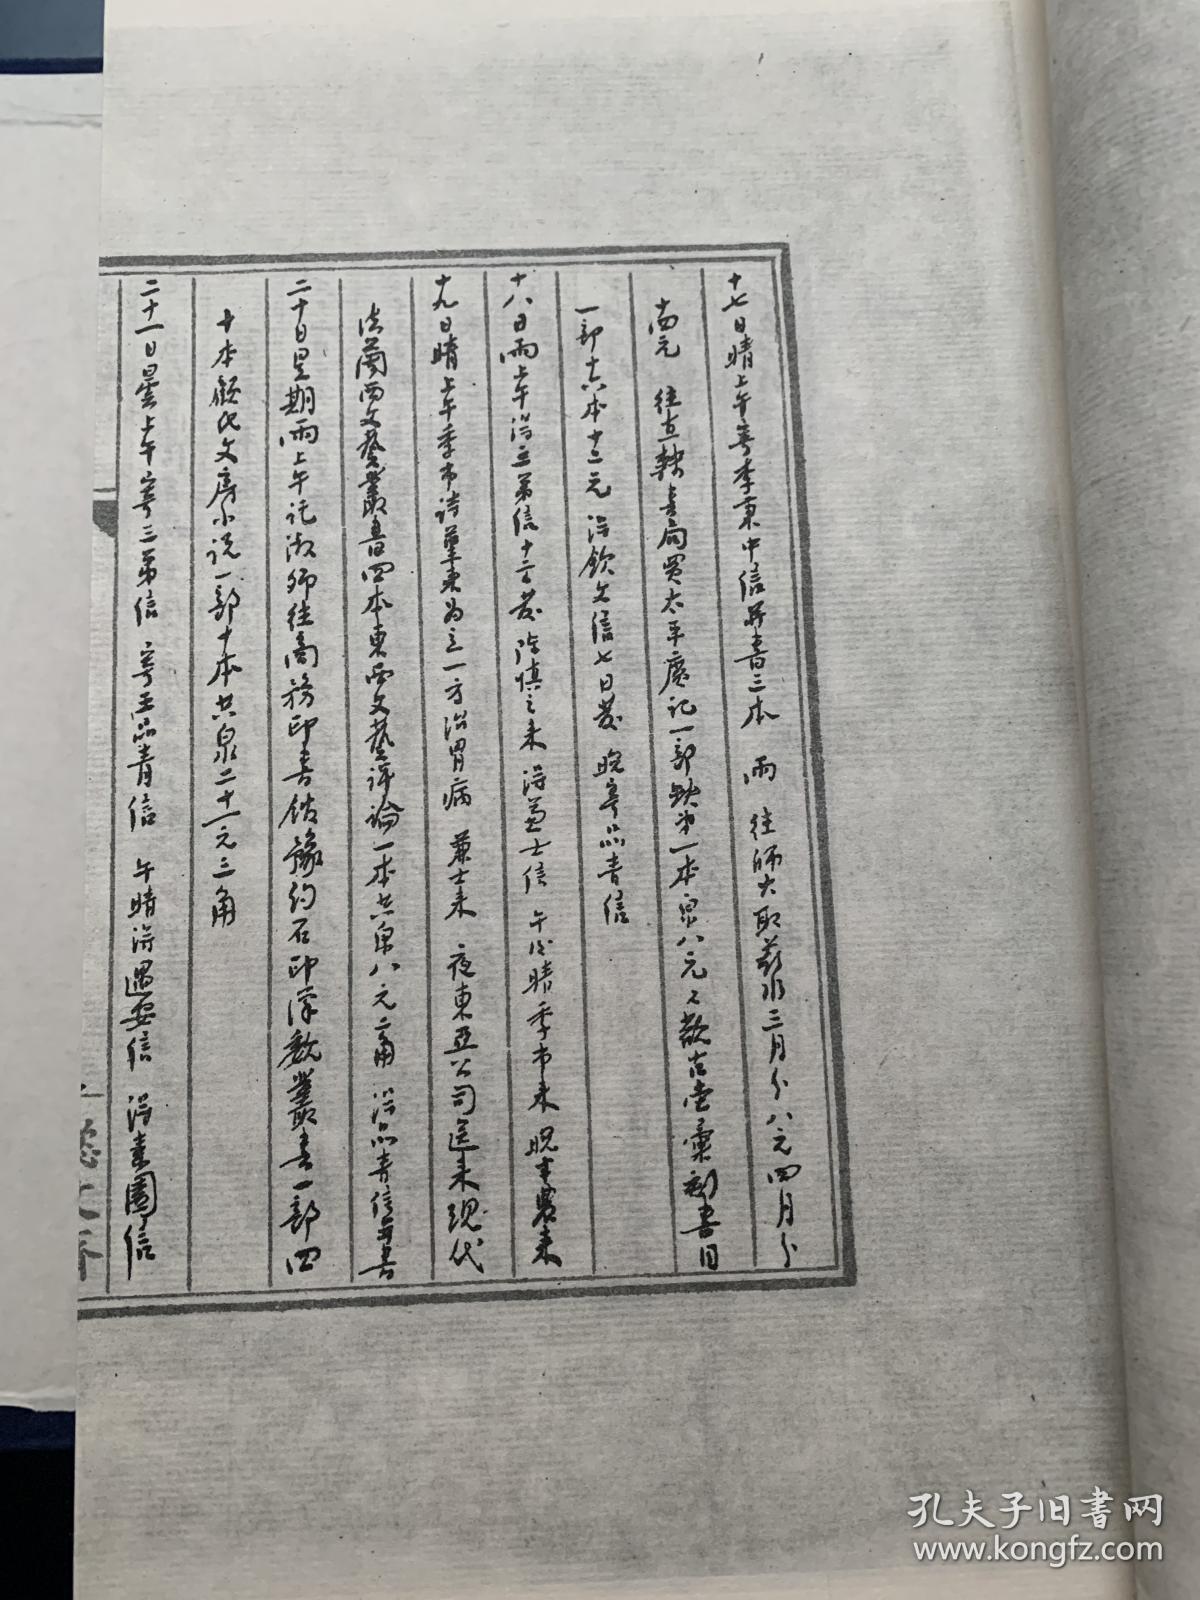 十七日晴上午寄李秉中信并書三本 雨 往師大取薪水三月分八元四月分
十四元 往直隸書局買太平廣記一部缺第一本泉八元又觀古堂彙刻書目
一部十六本十二元 得欽文信七日發 晚寄品青信
十八日雨上午得三弟信十三發 陳慎之來 得兼士信 午後晴季市來 晚半農來
十九日晴上午季市詩荃來為立一方治胃病 兼士來 夜東亞公司送來現代
法蘭西文藝叢書四本東西文藝評論一本共泉八元二角 得品青信并書
二十日星期雨上午託淑卿往商務印書館豫約石印漢魏叢書一部四
十本顧氏文房小說一部十本共泉二十一元三角
二十一日曇上午寄三弟信 寄王品青信 午晴得遇安信 得素園信
孔夫子旧书网
www.kongfz.com